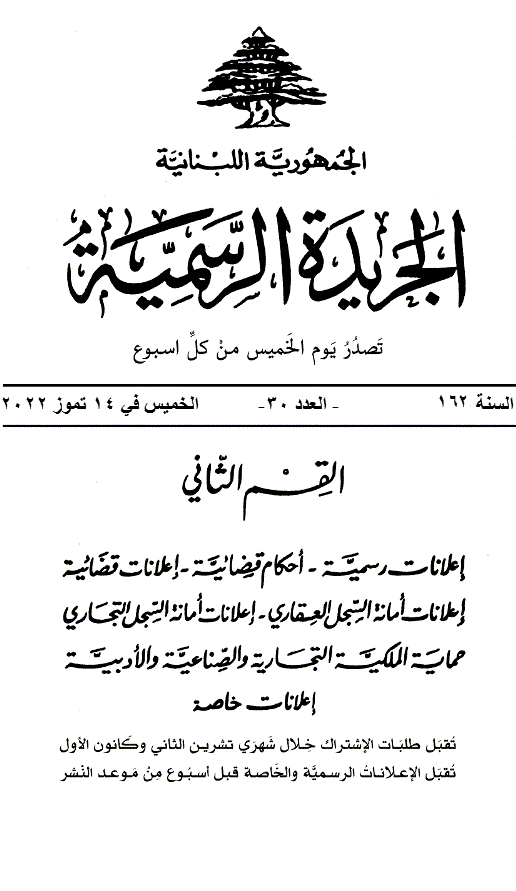 الجُمهُوريَّة اللبْنانيَّة
الجَريدَة الرسَّمِيَّة
تَصدُرُ يَوم الخَميس منْ كلِّ اسبوع
السنة ١٦٢ - العدد ٣٠- الخميس في ١٤ تموز ٢٠٢٢
القِسْم الثّاني
إعلانات رسميَّة - أحكام قضائيَّة - إعلانات قضائية
إعلانات أمانة السِّجل العقاري - إعلانات أمانة السِّجل التجاري
حماية الملكيَّة التجارية والصِّناعيَّة والأدبيَّة
إعلانات خاصة
تُقبَل طلبَات الإشتراك خِلال شَهرَي تشرين الثاني وكَانون الأول
تُقبَل الإعلاناتُ الرسميَّة والخَاصة قبل أسبُوع مِنْ مَوعد النَشر